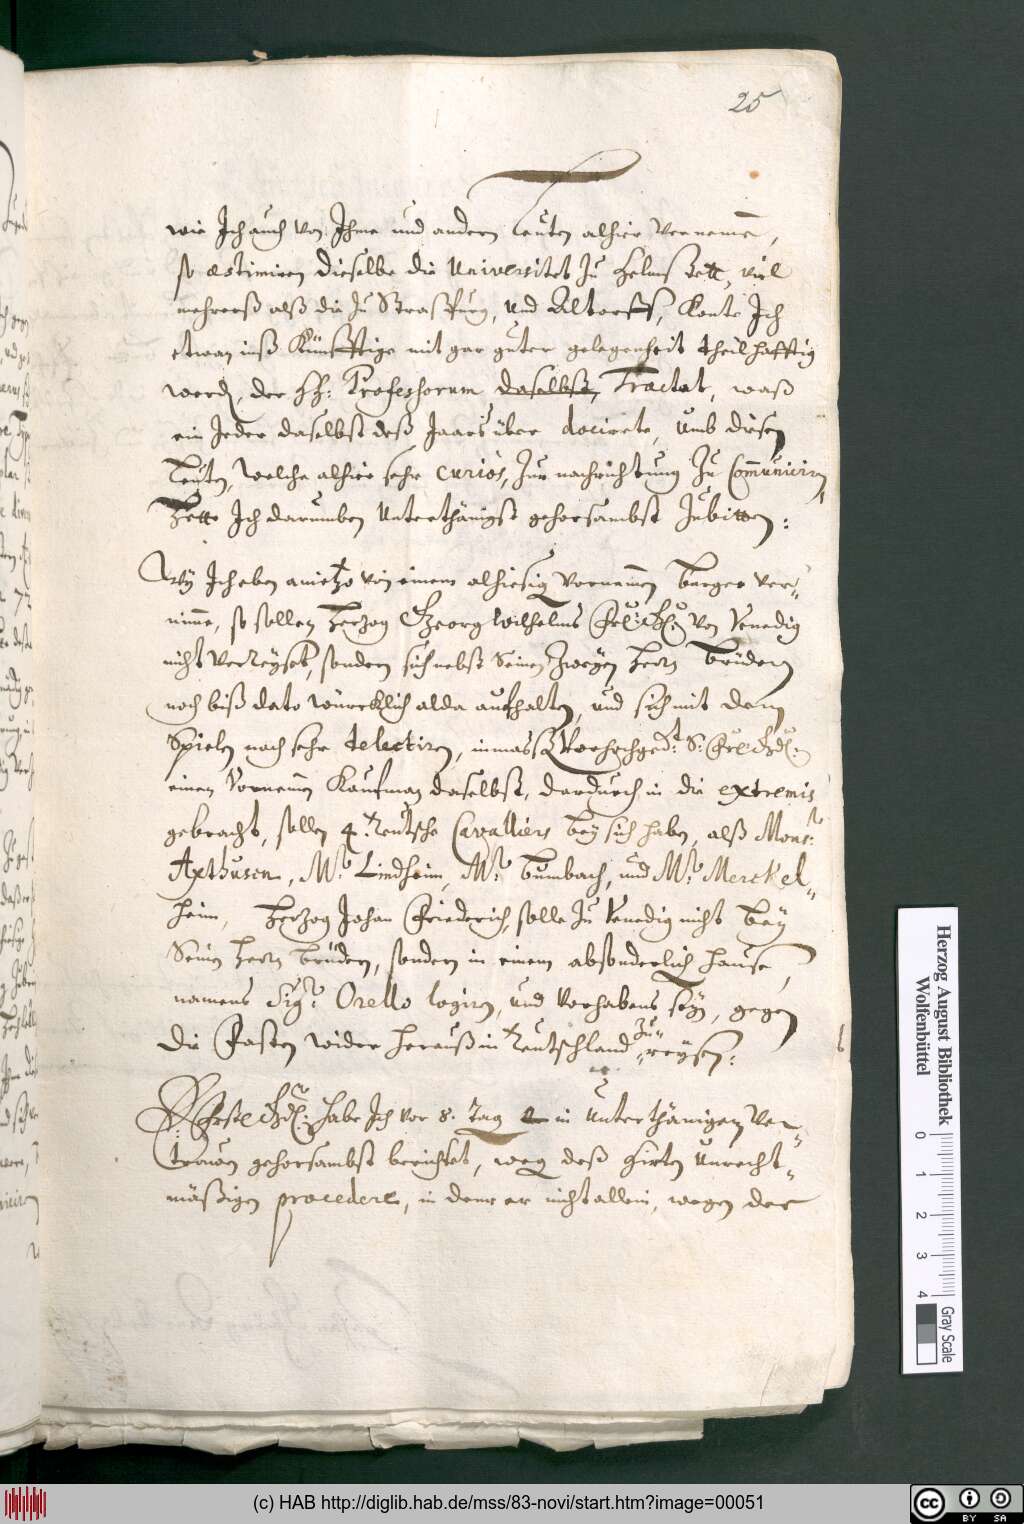 25
wie Ich auch von Ihme und andern Leuten alhier vernemme,
so æstimiren dieselbe die Universitet zu Helmstett, viel
mehrerß alß die zu Straßburg, und Altorff, Konte Ich
etwan inß Künfftige mit gar guter gelegenheit theilhafftig
werdē, der HH: Professorum daselbst, Tractat, waß
ein Jeder daselbst deß Jaars über docirete, umb diesen
Leuten, welche alhier sehr curiôs, zur nachrichtung zu Communicirn,
Hette Ich darumben Unterthänigst gehorsambst zu bitten:
Wÿ Ich eben anietzo von einem alhiesig Vornemmen Burger ver-
nimme, so sollen Herzog Georg Wilhelms Frl: Dhl: von Venedig
nicht verreyset, sondern sich nebst Seinen Zweyen Herrn Brüdern
noch biß dato würcklich alda aufhalten, und sich mit dem
Spielen noch sehr delectirn, inmassē Vorhochged.t S: Frl: Dhl:
einen Vornemmen Kaufman daselbst, dardurch in die extremis
gebracht, sollen 4. Teutsche Cavalliers bey sich haben, alß Monsr:
Axthusen, Mr: Lindheim, Mr: Bumbach, und Mr: Merckel-
heim, Herzog Johan Friederich, solle zu Venedig nicht bey
Seinen Herrn Brüdern, sondern in einem absonderlich Hause,
namens Sigr: Orello logirn, und Vorhabens seyn, gegen
Die Fasten wider herauß in Teutschland zu
reysen:
Dhl: habe Ich vor 8. Tag in Unterthänigen Ver-
trawen gehorsambst berichtet, weg deß Hirten Unrecht-
mäßigen procedere, in deme er nicht allein, wegen der
Herzog August Bibliothek
Wolfenbüttel
0 1 2 3 4
Gray Scale
(c) HAB http://diglib.hab.de/mss/83-novi/start.htm?image=00051
cc BY SA